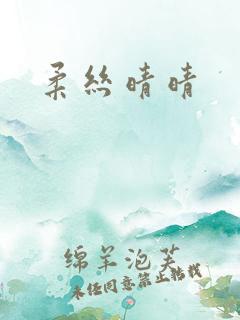 柔絲晴晴
绵羊泡芙
未经同意禁止转载